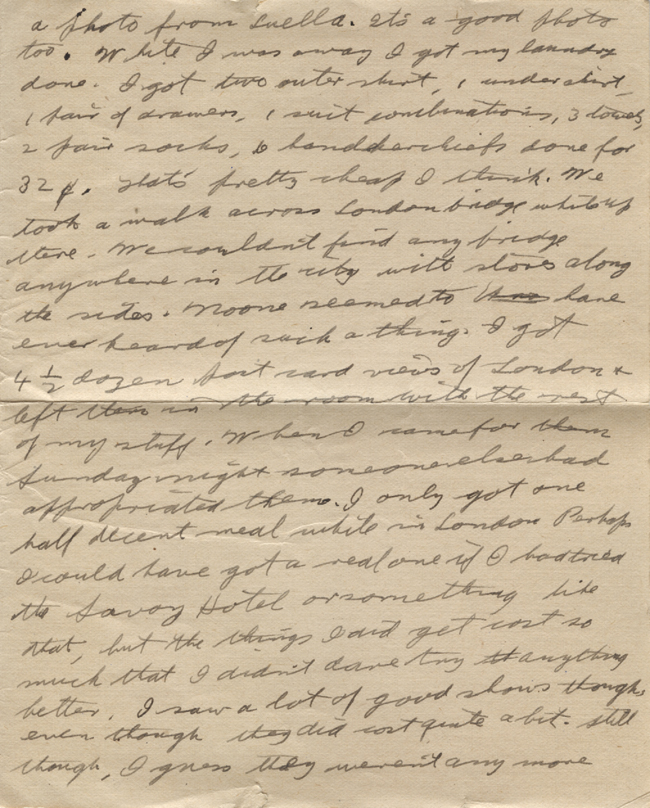 a photo from Luella. It's a good photo
too. While I was away I got my laundry
done. I got two outer shirt, 1 under shirt,
1 pair of drawers, 1 suit combinations, 3 towels,
2 pair socks, 6 handkerchiefs done for
32¢. That's pretty cheap I think. We
took a walk across London bridge while up
there. We couldn't find any bridge
anywhere in the city with stores along
the sides. Noone seemed to have
ever heard of such a thing. I got
4 1/2 dozen post card views of London +
left them in the room with the rest
of my stuff. When I came for them
Sunday night someone else had
appropriated them. I only got one
half decent meal while in London Perhaps
I could have got a real one if I had tried
the Savoy Hotel or something like
that, but the things I did get cost so
much that I didn't dare try anything
better. I saw a lot of good shows though,
even though they did cost quite a bit. Still
though, I guess they weren't any more